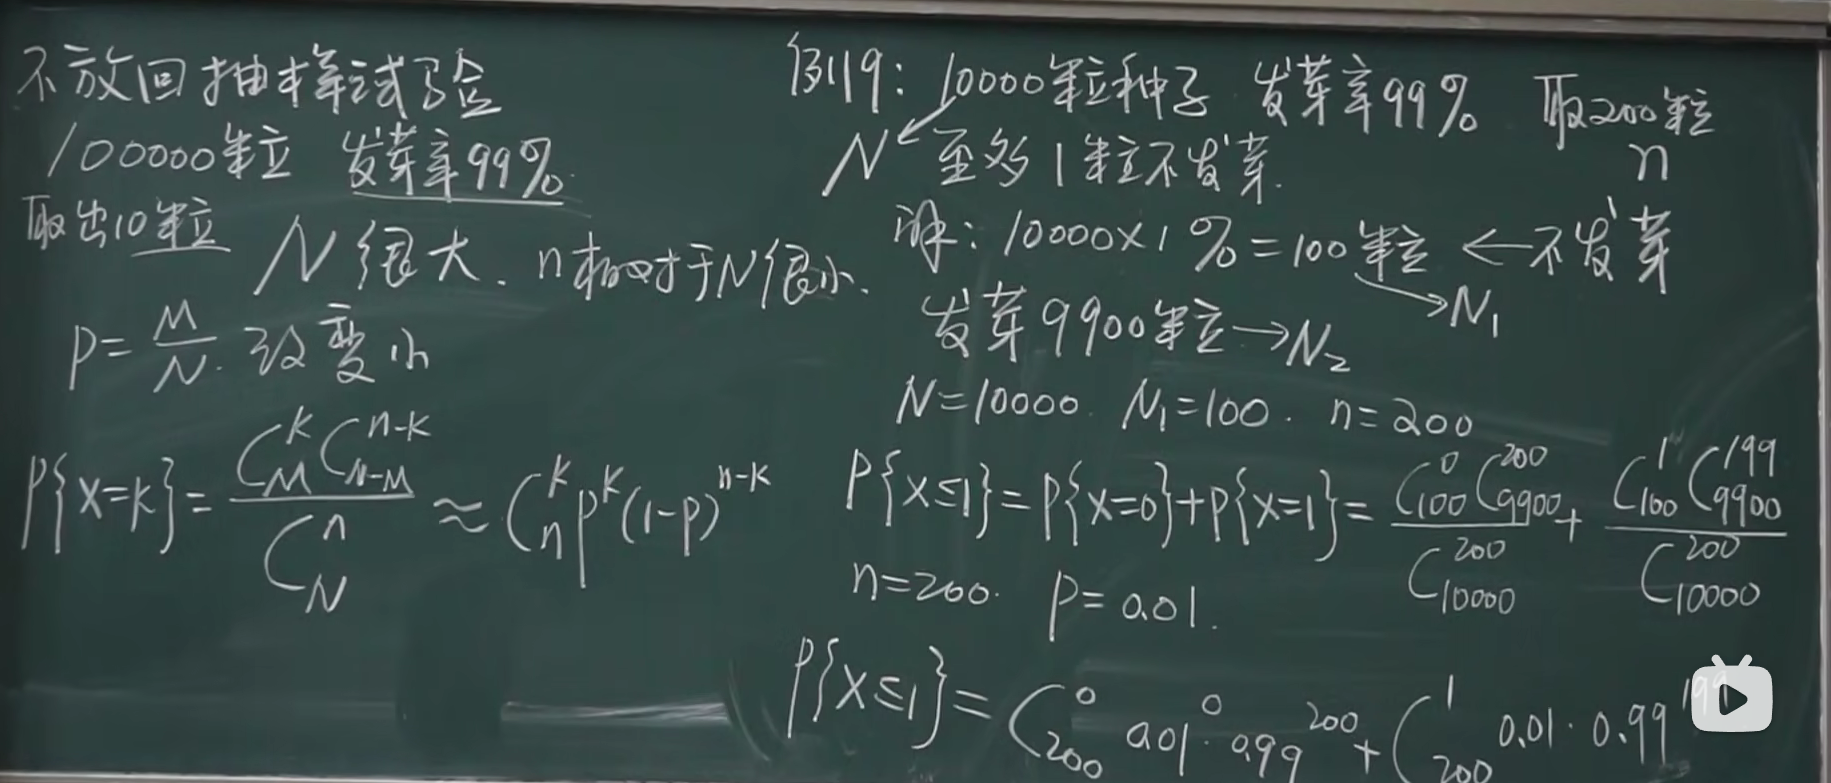 不放回抽样试验
100000粒 发芽率99%.
取出10粒
N很大. n相对于N很小.
P=M/N. 改变小
P{X=k}=C_M^k C_{N-M}^{n-k}/C_N^n≈C_n^k P^k(1-P)^{n-k}
例19: 10000粒种子 发芽率99% 取200粒
N 至多1粒不发芽. n
解: 10000×1%=100粒 ← 不发芽
→N₁
发芽9900粒→N₂
N=10000. N₁=100. n=200
P{X≤1}=P{X=0}+P{X=1}=C_{100}^0 C_{9900}^{200}/C_{10000}^{200}+C_{100}^1 C_{9900}^{199}/C_{10000}^{200}
n=200. P=0.01.
P{X≤1}=C_{200}^0 0.01^0·0.99^{200}+C_{200}^1 0.01·0.99^{199}